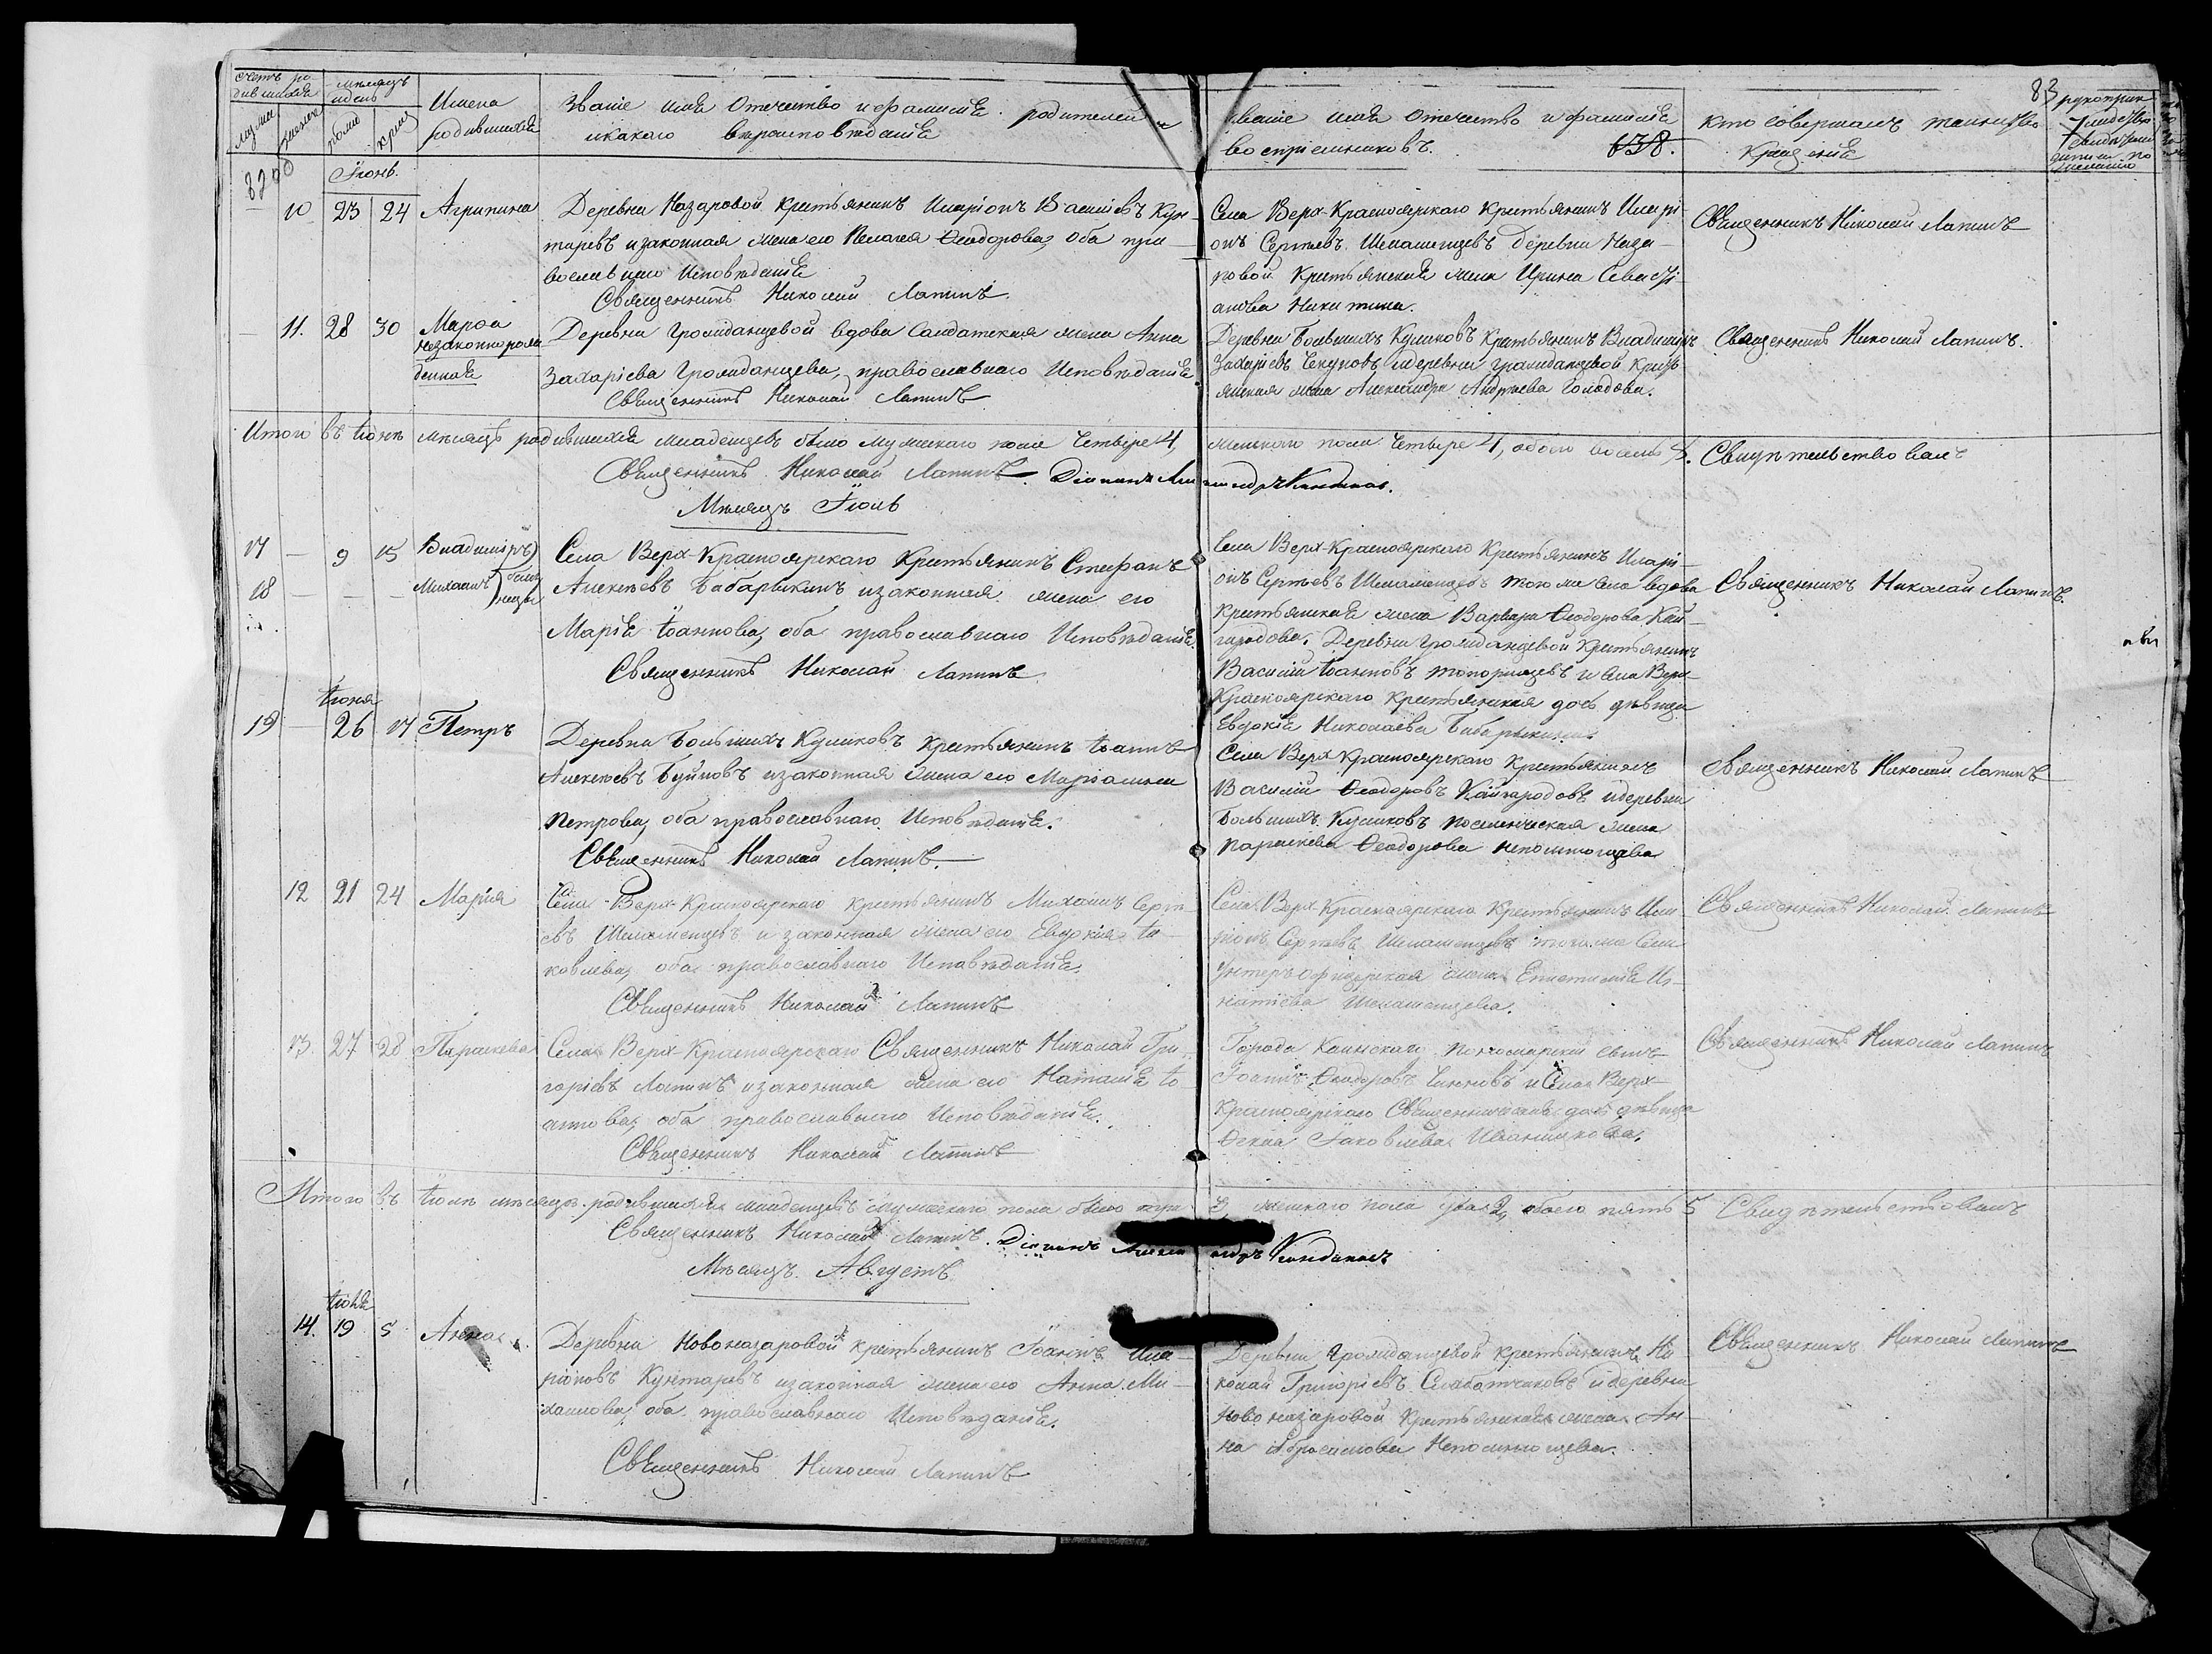 83
счетъ ро-
дившихся
мѣсяцъ
и день
Имена
родившихся
Званіе имя отечество и фамилія родителей и
и какого вѣроисповѣданія
Званіе имя отечество и фамилія
воспріемниковъ.
638.
Кто совершалъ таинство
крещенія
Іюнь.
10 23 24 Агрипина
Деревни Назаровой крестьянинъ Иларіонъ Васильевъ Кун-
таревъ и законная жена его Пелагея Ѳеодорова, оба пра-
вославнаго Исповѣданія
Священникъ Николай Лапинъ.
Села Верх-Красноярскаго крестьянинъ Илорі-
онъ Сергѣевъ Шелашенцевъ деревни Наза-
ровой крестьянская жена Ирина Севасті-
анова Никитина.
Священникъ Николай Лапинъ
11. 28 30 Марѳа
незаконнорож-
денная
Деревни Громданцевой вдова Салдатская жена Анна
Захаріева Громданцева, православнаго Исповѣданія
Священникъ Николай Лапинъ
Деревни Большихъ Куликовъ крестьянинъ Владиміръ
Захаріевъ Чекуновъ и деревни Громданцевой кресть-
янская жена Александра Андреева Голодова.
Священникъ Николай Лапинъ.
Итого въ Іюнѣ мѣсяцѣ родившихся младенцевъ было мужескаго пола Четыре 4,
женскаго пола Четыре 4, обоего восемь 8. Свидѣтельствовалъ
Священникъ Николай Лапинъ.
Мѣсяцъ Іюль
17 — 9 15 Владиміръ
18 — — — Михаилъ
близ-
нецы
Села Верх-Красноярскаго Крестьянинъ Стефанъ
Алексѣевъ Бабарыкинъ и законная жена его
Марія Іоаннова, оба православнаго Исповѣданія.
Священникъ Николай Лапинъ
Села Верх-Красноярскаго Крестьянинъ Иларі-
онъ Сергѣевъ Шелашенцевъ того же Села вдова
крестьянская жена Варвара Ѳеодорова Кай-
гародова. Деревни Громданцевой крестьянинъ
Василій Іоанновъ Топорищевъ и Села Верх-
Красноярскаго крестьянская дочь дѣвица
Евдокія Николаева Бабарыкина
Священникъ Николай Лапинъ.
Іюня
19 — 26 17 Петръ
Деревни Большихъ Куликовъ крестьянинъ Іоаннъ
Алексѣевъ Буйновъ и законная жена его Маріамна
Петрова, оба православнаго Исповѣданія.
Священникъ Николай Лапинъ.
Села Верх Красноярскаго крестьянинъ
Василій Ѳеодоровъ Кайгародовъ и деревни
Большихъ Куликовъ поселенческая жена
Параскева Ѳеодорова Непомнющева
Священникъ Николай Лапинъ
12 21 24 Марія
Села Верх-Красноярскаго крестьянинъ Михаилъ Сергѣ-
евъ Шелашенцевъ и законная жена его Евдокія Іа-
ковлева, оба православнаго Исповѣданія.
Священникъ Николай Лапинъ
Села Верх Красноярскаго Крестьянинъ Ила-
ріонъ Сергѣевъ Шелашенцевъ того же Села
Унтеръ офицерская жена Епистимія Иг-
натіева Шелашенцева.
Священникъ Николай Лапинъ
13. 27 28 Параскева
Села Верх-Красноярскаго Священникъ Николай Гри-
горіевъ Лапинъ и законная жена его Наталія Іо-
аннова, оба православнаго Исповѣданія.
Священникъ Николай Лапинъ
Города Каинскаго Пономарскій сынъ
Іоаннъ Ѳеодоровъ и Села Верх-
Красноярскаго Священническая дочь дѣвица
Ѳекла Іаковлева Иваницкова.
Священникъ Николай Лапинъ
Итого въ Іюлѣ мѣсяцѣ родившихся младенцевъ мужескаго пола было три
3, женскаго пола два 2, обоего пять 5 Свидѣтельствовалъ
Священникъ Николай Лапинъ.
Мѣсяцъ Августъ
Іюля
14. 19 5 Анна
Деревни Новоназаровой крестьянинъ Іоаннъ Ила-
ріоновъ Кунтаревъ и законная жена его Анна Ми-
хаилова, оба православнаго Исповѣданія.
Священникъ Николай Лапинъ
Деревни Громданцевой крестьянинъ Ни-
колай Григоріевъ Слаботчиковъ и деревни
Новоназаровой Крестьянская жена Ан-
на Непомнющева.
Священникъ Николай Лапинъ